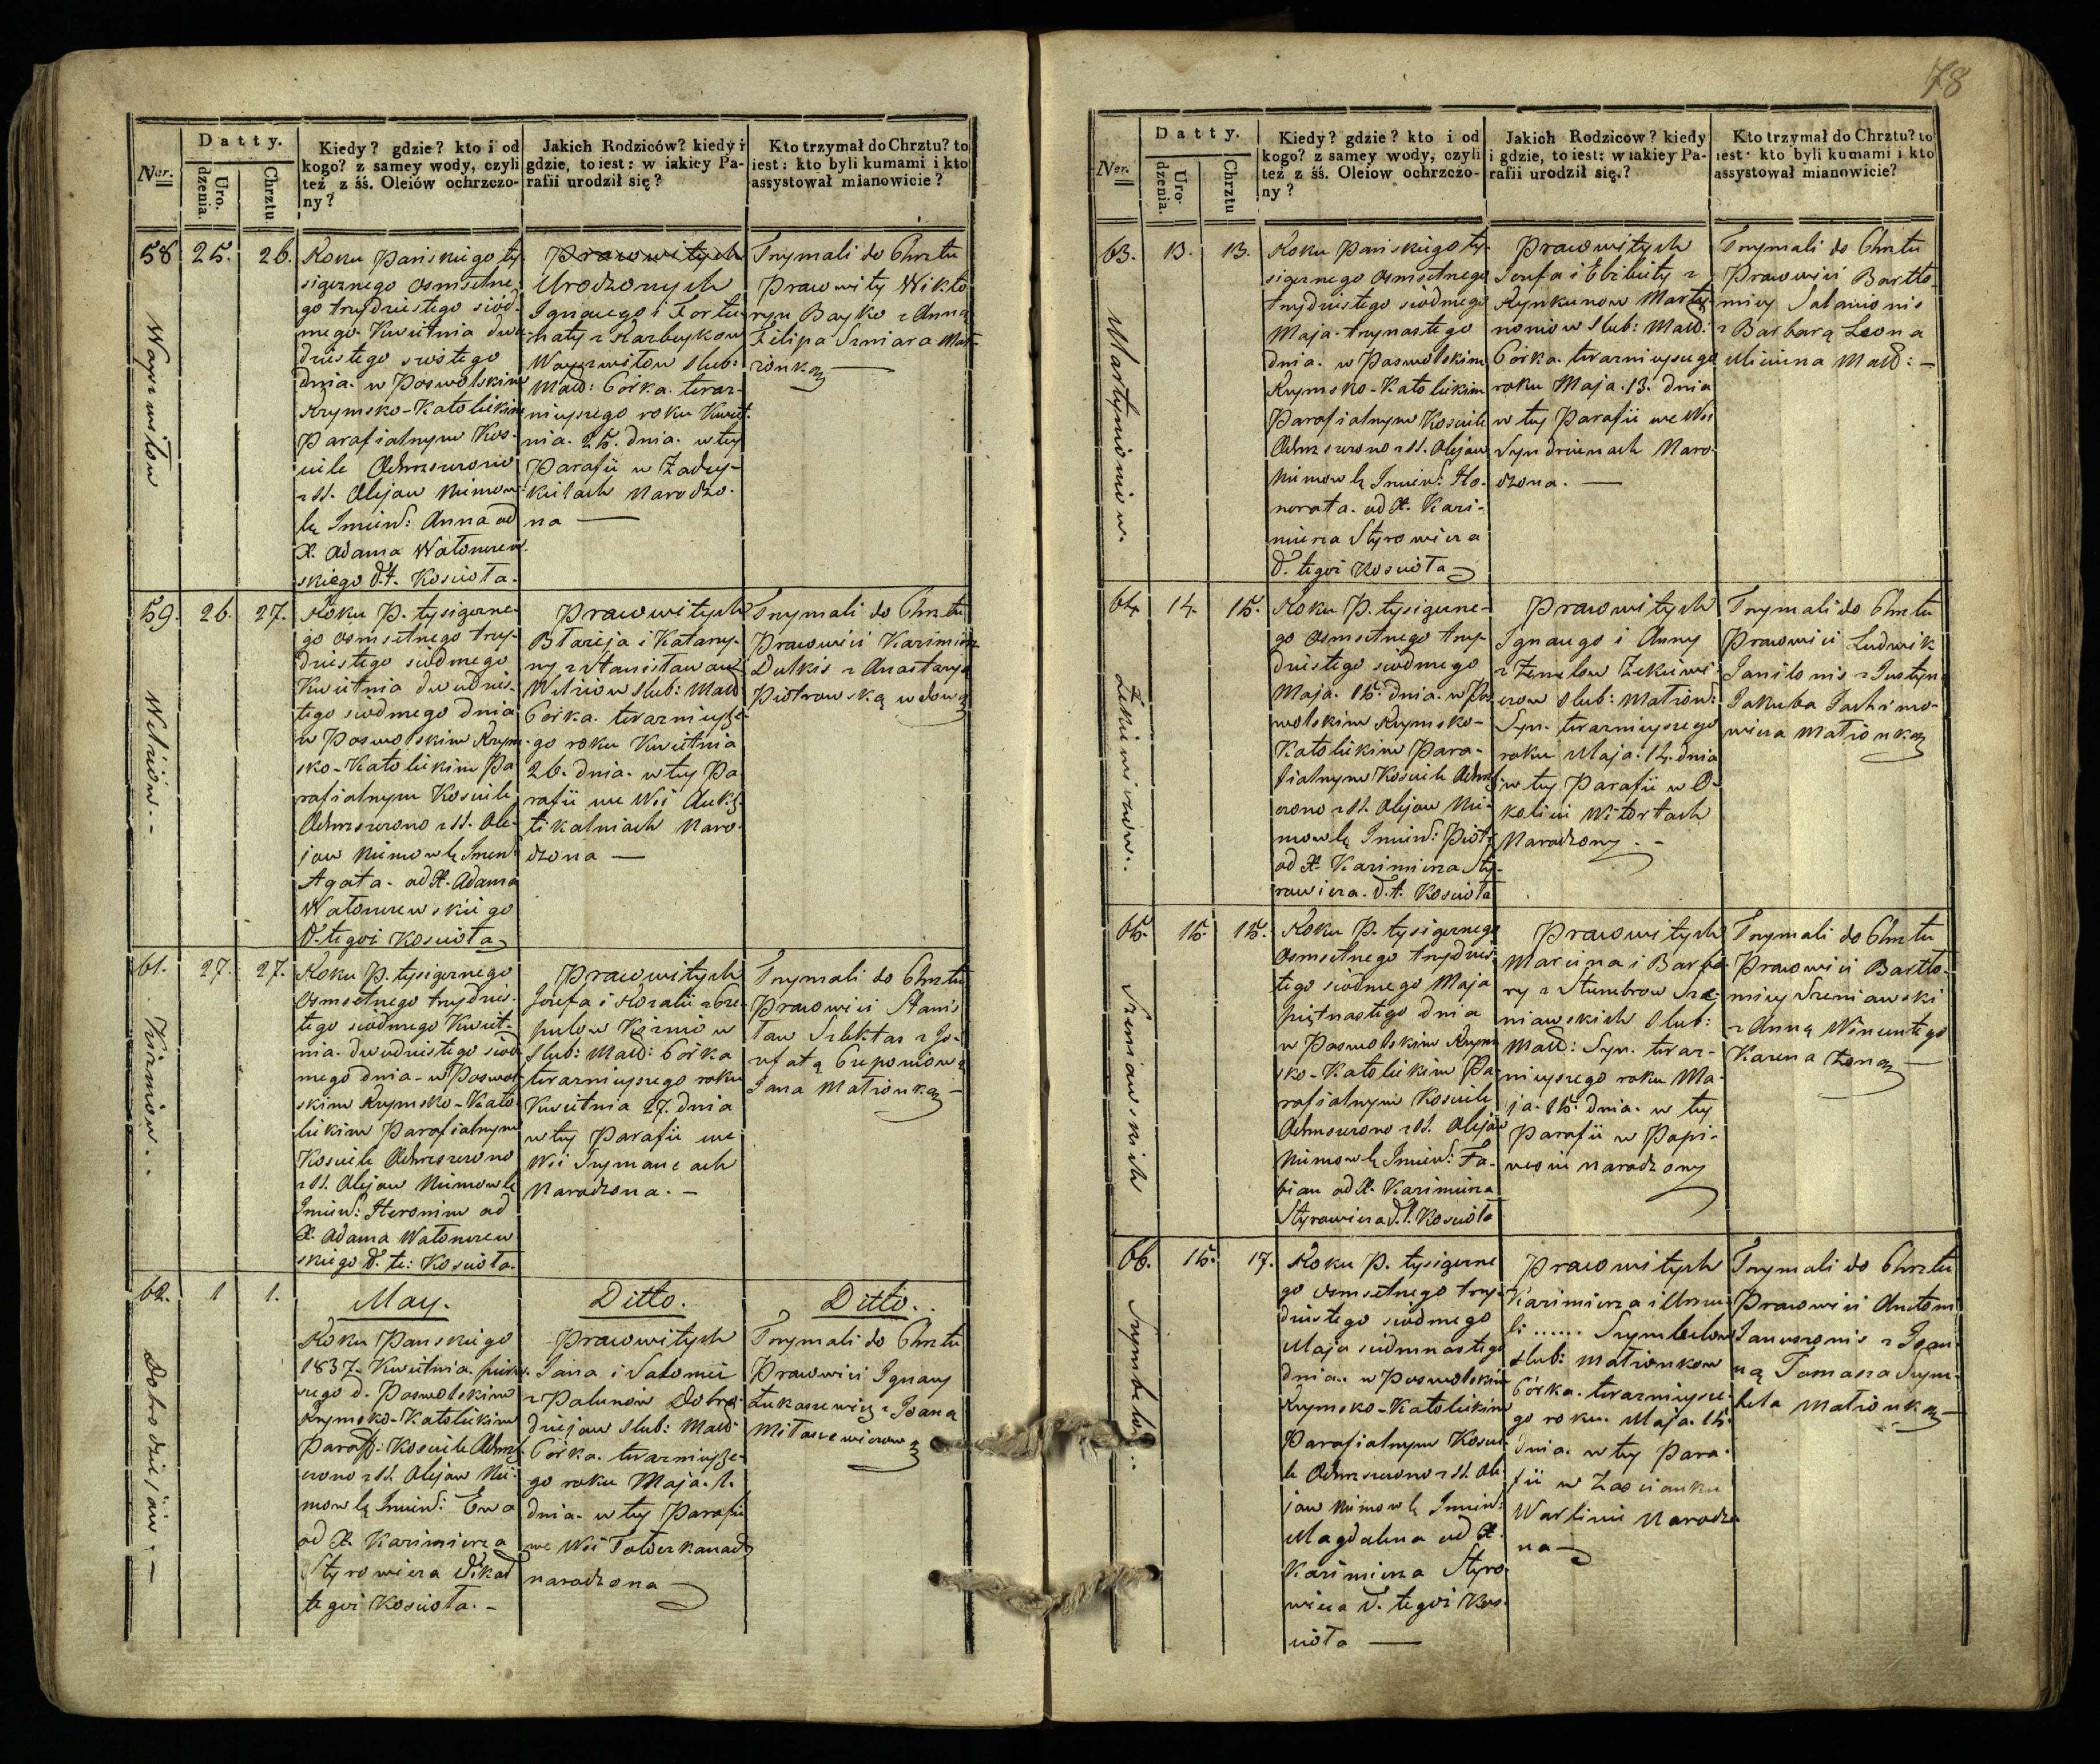 78
Datty.
Ner.
Uro-
dzenia.
Chrztu
Kiedy? gdzie? kto i od
kogo? z samey wody, czyli
też z śś. Oleiów ochrzczo-
ny?
Jakich Rodziców? kiedy i
gdzie, to iest: w iakiey Pa-
rafii urodził się?
Kto trzymał do Chrztu? to
iest: kto byli kumami i kto
assystował mianowicie?
58
25.
26.
Roku Pańskiego ty-
sięcznego osmsetne
go trzydziestego siód-
mego Kwietnia dwu
dziestego szóstego
dnia w Poswolskim
Rzymsko-Katolickim
Parafialnym Koś-
ciele Ochrzczono
z SS. Olejow Niemow-
lę Imien: Anna od
X. Adama Watonczew-
skiego W.t. Kosciola.
Prawowitych
Urodzonych
Ignacego i Fortu-
naty z Karbuykow
Slub:
Małż: Córka teraz-
nieyszego roku Kwiet.
nia 25. dnia w tey
Parafii w Zadey-
kielach Narodzo-
na
Trzymali do Chrztu
Prawowity Wikto-
ryn Bayko z Anną
Filipa Szniara Mał-
żonką
59.
26.
27.
Welziów.
Roku P. tysięczne-
go osmsetnego trzy-
dziestego siódmego
Kwietnia dwudzies-
tego siódmego dnia
w Poswolskim Rzym-
sko-Katolickim Pa
rafialnym Kosciele
Ochrzczono z SS. Ole-
jow Niemowlę Imien:
Agata od X. Adama
Watonczewskiego
W. tegoż Kosciola
Prawowitych
Błażeja i Katarzy-
ny z Stanisławow
Welziow Slub: Małż
Córka teraznieysze-
go roku Kwietnia
26. dnia w tey Pa
rafii we Wsi Auksz-
tikalniach Naro-
dzona
Trzymali do Chrztu
Prawowici Kazimierz
Dulkis z Anastazyą
Piotrowską wdową
61.
27.
27.
Kirmiow.
Roku P. tysięcznego
Osmsetnego trzydzies-
tego siódmego Kwiet-
nia dwudziestego siód
mego dnia w Poswol-
skim Rzymsko-Kato
lickim Parafialnym
Kosciele Ochrzczono
z SS. Olejow Niemowlę
Imien: Heronim od
X. Adama Watonczew
skiego W. te: Kosciola.
Prawowitych
Jozefa i Rozalii z Cze-
pulow Kirmiow
Slub: Małż: Córka
teraznieyszego roku
Kwietnia 27. dnia
w tey Parafii we
Wsi Szymancach
Narodzona.
Trzymali do Chrztu
Prawowici Stanis
ław Szlektas z Jo-
zefatą Czeponiową
Jana Małżonką
62.
1
1.
Dobrodziejów.
May.
Ditto.
Ditto.
Roku Panskiego
1837. Kwietnia pierw-
szego d. Poswolskim
Rzymsko-Katolickim
Paraff: Kosciele Ochrz-
czono z SS. Olejow Nie-
mowlę Imien: Ewa
od X. Kazimierza
Styrowicza Wikar
tegoż Kosciola.
Prawowitych
Jana i Salomei
z Palunow Dobro-
dziejow Slub: Małż
Córka teraznieysze-
go roku Maja 1.
dnia w tey Parafii
we Wsi Tołoczkanach
narodzona
Trzymali do Chrztu
Prawowici Ignacy
Łukaszewicz z Joaną
Mitaszewiczową
Datty.
Ner.
Uro-
dzenia.
Chrztu
Kiedy? gdzie? kto i od
kogo? z samey wody, czyli
też z śś. Oleiow ochrzczo-
ny?
Jakich Rodzicow? kiedy
i gdzie, to iest: w iakiey Pa-
rafii urodził się?
Kto trzymał do Chrztu? to
iest: kto byli kumami i kto
assystował mianowicie?
63.
13.
13.
Martynoniow.
Roku Panskiego ty-
sięcznego Osmsetnego
trzydziestego siodmego
Maja trzynastego
dnia w Poswolskim
Rzymsko-Katolickim
Parafialnym Kosciele
Ochrzczono z SS. Olejow
Niemowlę Imien: Ho-
norata od X. Kazi-
mierza Styrowicza
W. tegoż Kosciola
Prawowitych
Jozefa i Elżbiety z
Rynkunow Marty-
noniow Slub: Małż:
Córka teraznieyszego
roku Maja 13. dnia
w tey Parafii we Wsi
Syndziunach Naro-
dzona.
Trzymali do Chrztu
Prawowici Bartło-
miey Salamonis
z Barbarą Leona
Małż:
64.
14.
15.
Roku P. tysięczne-
go Osmsetnego trzy-
dziestego siodmego
Maja 15. dnia w Pos
wolskim Rzymsko-
Katolickim Para-
fialnym Kosciele Ochrz
czono z SS. Olejow Nie-
mowlę Imien: Piotr
od X. Kazimierza Sty-
rowicza W.t. Kosciola
Prawowitych
Ignacego i Anny
z Zemelow
Slub: Małżon:
Syn teraznieyszego
roku Maja 14. dnia
w tey Parafii w O-
kolicy Witortach
Narodzony.
Trzymali do Chrztu
Prawowici Ludwik
Janilonis z Justyną
Jakuba Jachimo-
wicza Małżonką
65.
15.
15.
Szeniawskich
Roku P. tysięcznego
Osmsetnego trzydzies-
tego siódmego Maja
piętnastego dnia
w Poswolskim Rzym
sko-Katolickim Pa-
rafialnym Kosciele
Ochrzczono z SS. Olejow
Niemowlę Imien: Fa-
bian od X. Kazimierza
Styrowicza W.t. Kosciola
Prawowitych
Marcina i Barba-
ry z Stumbrow Sze-
niawskich Slub:
Małż: Syn teraz-
nieyszego roku Ma-
ja 15. dnia w tey
Parafii w Papi-
wesiu narodzony
Trzymali do Chrztu
Prawowici Bartło-
miey Szeniawski
z Anną Wincentego
Karena żoną
66.
15.
17.
Szymbelow.
Roku P. tysięczne
go osmsetnego trzy-
dziestego siódmego
Maja siedmnastego
dnia w Poswolskim
Rzymsko-Katolickim
Parafialnym Koscie-
le Ochrzczono z SS. Ole
jow Niemowlę Imien:
Magdalena od X.
Kazimierza Styro-
wicza W. tegoż Kos-
ciola
Prawowitych
Kazimierza i Urszu-
li ...... Szymbelow
Slub: Małżonkow
Córka teraznieysze-
go roku Maja 15.
dnia w tey Para-
fii w Zascianku
Warlinie Narodzo
na
Trzymali do Chrztu
Prawowici Antoni
Januszonis z Joan-
ną Tomasza Szym-
bela Małżonką